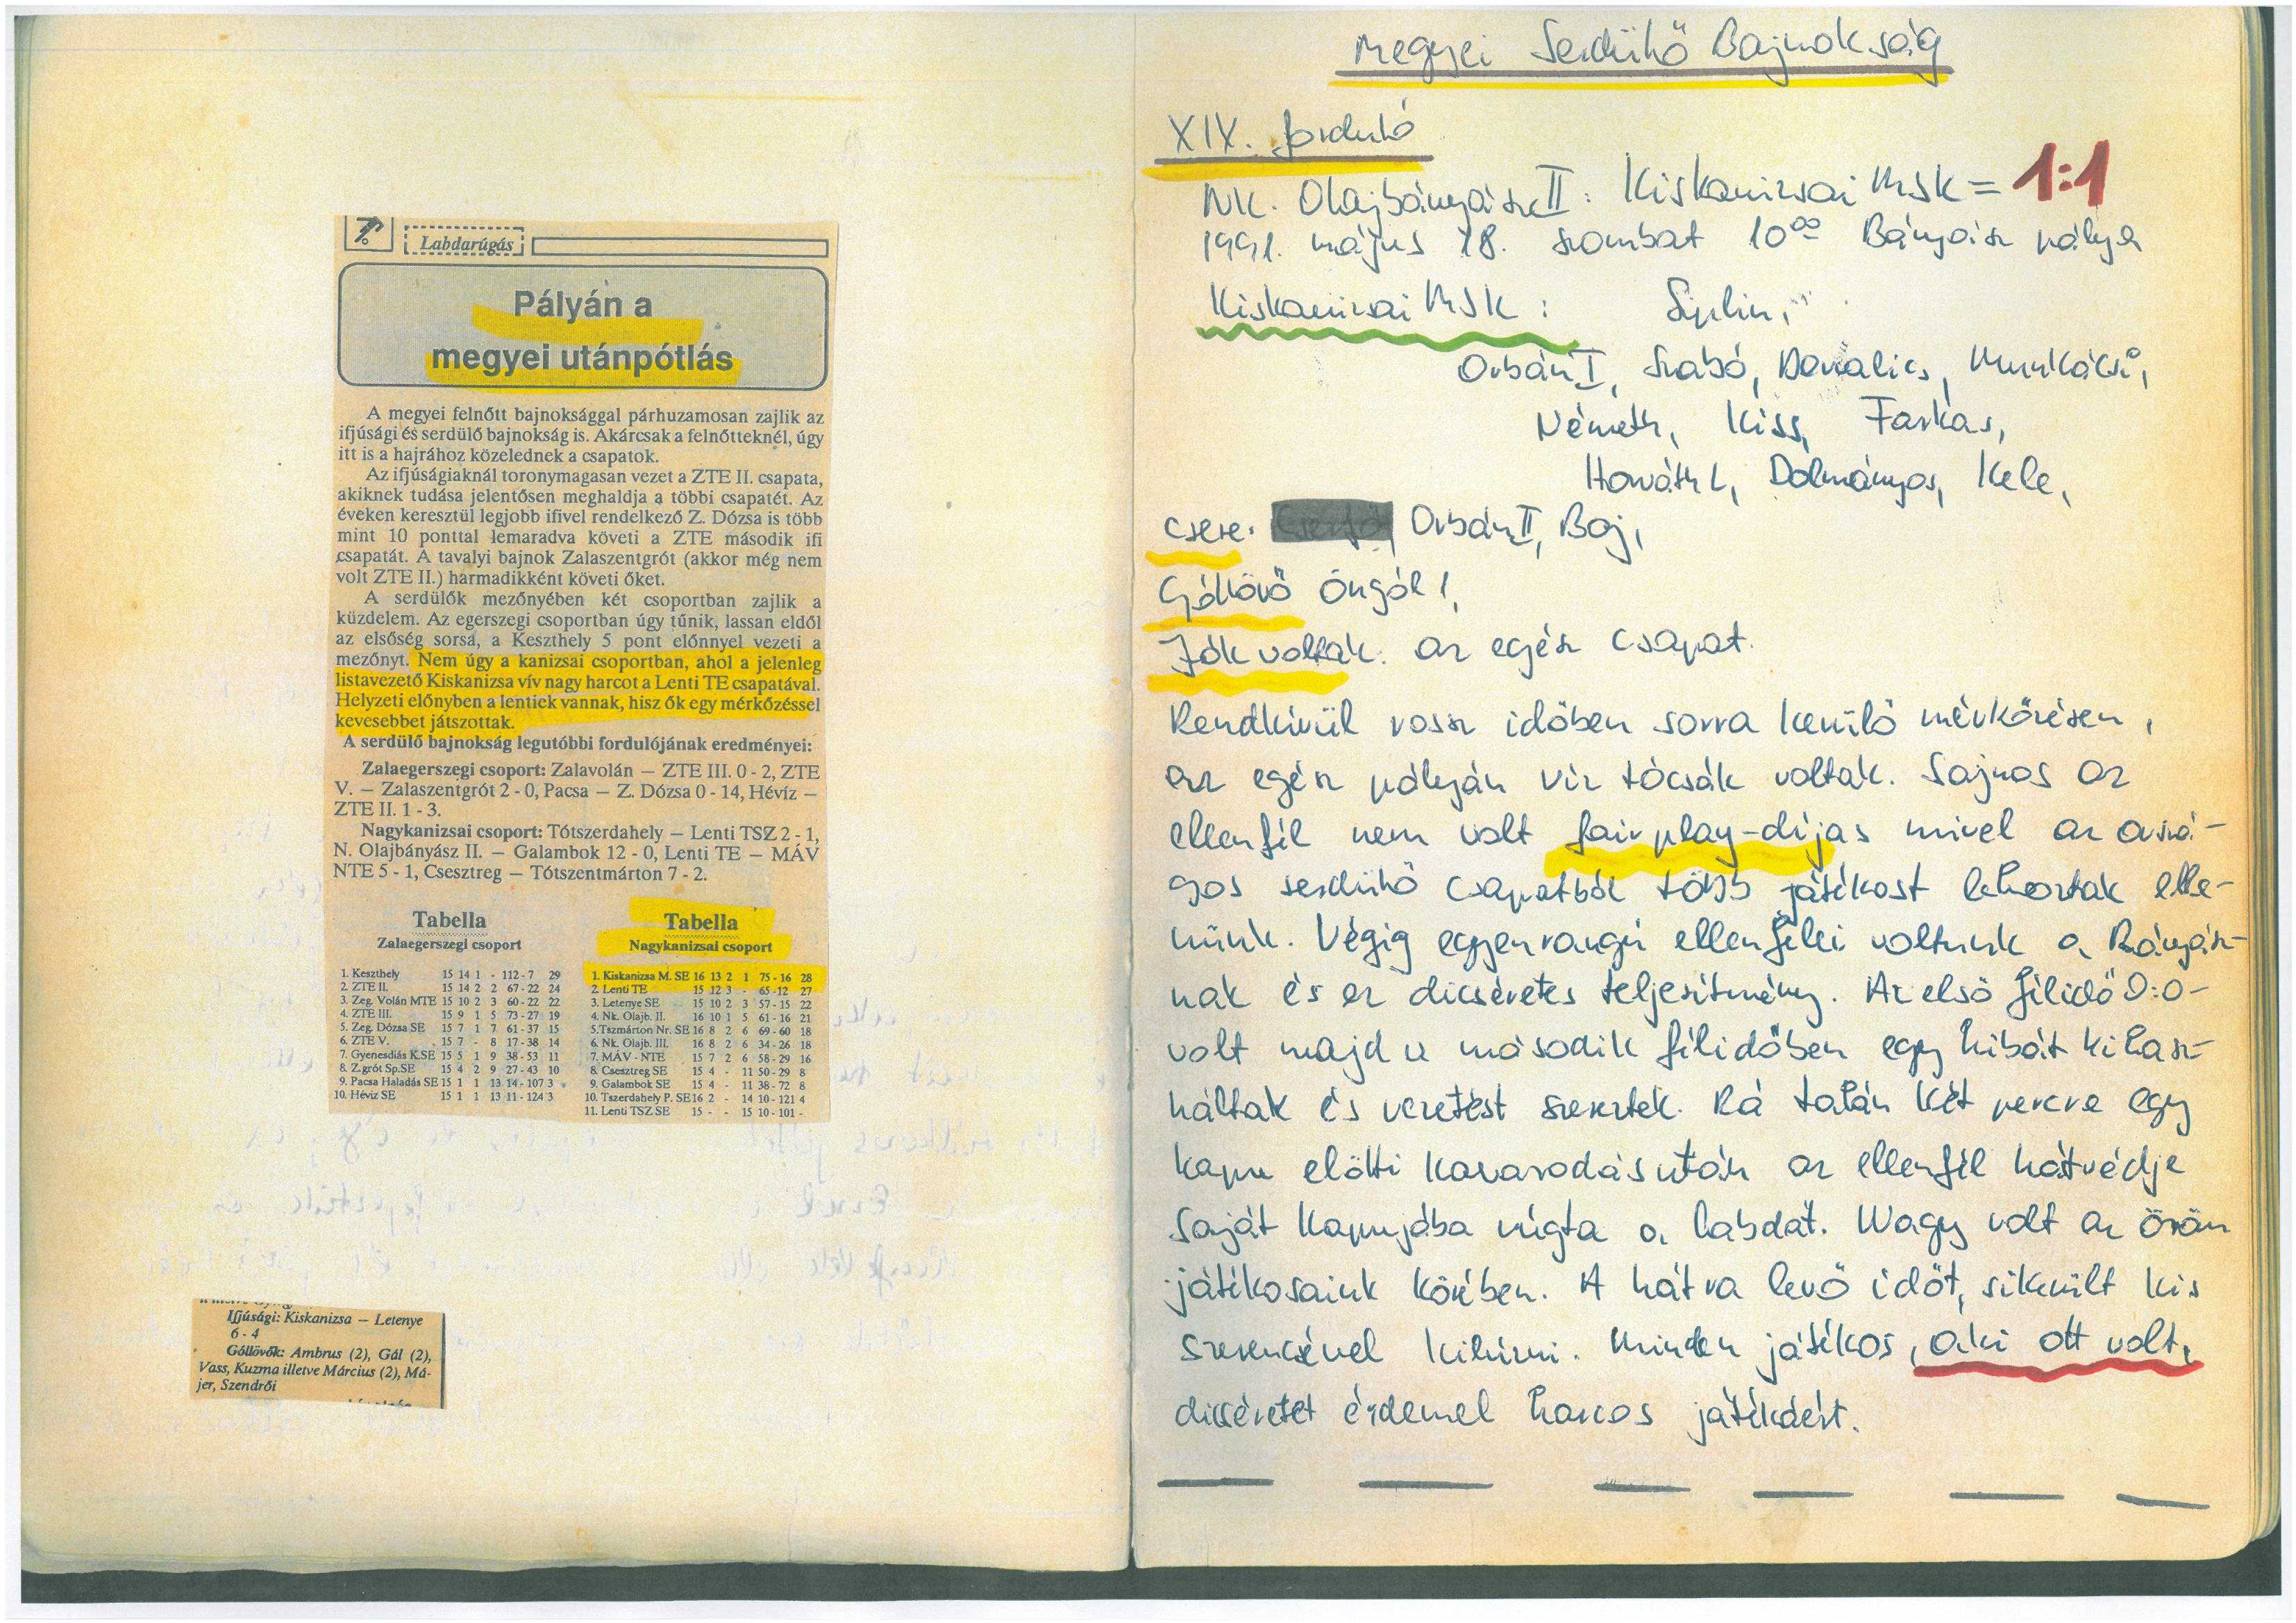 Labdarúgás
Pályán a
megyei utánpótlás
A megyei felnőtt bajnoksággal párhuzamosan zajlik az
ifjúsági és serdülő bajnokság is. Akárcsak a felnőtteknél, úgy
itt is a hajrához közelednek a csapatok.
Az ifjúságiaknál toronymagasan vezet a ZTE II. csapata,
akiknek tudása jelentősen meghaldja a többi csapatét. Az
éveken keresztül legjobb ifivel rendelkező Z. Dózsa is több
mint 10 ponttal lemaradva követi a ZTE második ifi
csapatát. A tavalyi bajnok Zalaszentgrót (akkor még nem
volt ZTE II.) harmadikként követi őket.
A serdülők mezőnyében két csoportban zajlik a
küzdelem. Az egerszegi csoportban úgy tűnik, lassan eldől
az elsőség sorsa, a Keszthely 5 pont előnnyel vezeti a
mezőnyt. Nem úgy a kanizsai csoportban, ahol a jelenleg
listavezető Kiskanizsa vív nagy harcot a Lenti TE csapatával.
Helyzeti előnyben a lentiek vannak, hisz ők egy mérkőzéssel
kevesebbet játszottak.
A serdülő bajnokság legutóbbi fordulójának eredményei:
Zalaegerszegi csoport: Zalavolán — ZTE III. 0 - 2, ZTE
V. — Zalaszentgrót 2 - 0, Pacsa — Z. Dózsa 0 - 14, Hévíz —
ZTE II. 1 - 3.
Nagykanizsai csoport: Tótszerdahely — Lenti TSZ 2 - 1,
N. Olajbányász II. — Galambok 12 - 0, Lenti TE — MÁV
NTE 5 - 1, Csesztreg — Tótszentmárton 7 - 2.
Tabella
Zalaegerszegi csoport
1. Keszthely 15 14 1 - 112-7 29
2. ZTE II. 15 14 2 2 67-22 24
3. Zeg. Volán MTE 15 10 2 3 60-22 22
4. ZTE III. 15 9 1 5 73-27 19
5. Zeg. Dózsa SE 15 7 1 7 61-37 15
6. ZTE V. 15 7 - 8 17-38 14
7. Gyenesdiás K.SE 15 5 1 9 38-53 11
8. Z.grót Sp.SE 15 4 2 9 27-43 10
9. Pacsa Haladás SE 15 1 1 13 14-107 3
10. Hévíz SE 15 1 1 13 11-124 3
Tabella
Nagykanizsai csoport
1. Kiskanizsa M. SE 16 13 2 1 75-16 28
2. Lenti TE 15 12 3 - 65-12 27
3. Letenye SE 15 10 2 3 57-15 22
4. Nk. Olajb. II. 16 10 1 5 61-16 21
5.Tszmárton Nr. SE 16 8 2 6 69-60 18
6. Nk. Olajb. III. 16 8 2 6 34-26 18
7. MÁV - NTE 15 7 2 6 58-29 16
8. Csesztreg SE 15 4 - 11 50-29 8
9. Galambok SE 15 4 - 11 38-72 8
10. Tszerdahely P. SE16 2 - 14 10-121 4
11. Lenti TSZ SE 15 - - 15 10-101 -
Ifjúsági: Kiskanizsa — Letenye
6 - 4
Góllövők: Ambrus (2), Gál (2),
Vass, Kuzma illetve Március (2), Má-
jer, Szendrői
Megyei Serdülő Bajnokság
XIX. forduló
NK. Olajbányász II : Kiskanizsai MSK = 1:1
1991. május 18. szombat 10⁰⁰ Bányász pálya
Kiskanizsai MSK : Siplin,
Orbán I, Szabó, Munkácsi,
Németh, Kiss, Farkas,
Horváth L, Dolmányos, Kele,
Csere: Orbán II, Baj,
Góllövő öngól!,
Jók voltak: az egész csapat.
Rendkívül rossz időben sorra kerülő mérkőzésen,
az egész pályán víz tócsák voltak. Sajnos az
ellenfél nem volt fairplay-díjas mivel az orszá-
gos serdülő csapatból több játékost lehoztak elle-
nünk. Végig egyenrangú ellenfelei voltunk a Bányász-
nak és ez dicséretes teljesítmény. Az első félidő 0:0-
volt majd a második félidőben egy hibát kihasz-
náltak és vezetést szereztek. Rá talán két percre egy
kapu előtti kavarodás után az ellenfél hátvédje
saját kapujába rúgta a labdát. Nagy volt az öröm
játékosaink körében. A hátra levő időt, sikerült kis
szerencsével kihúzni. Minden játékos, aki ott volt,
dicséretet érdemel harcos játékáért.